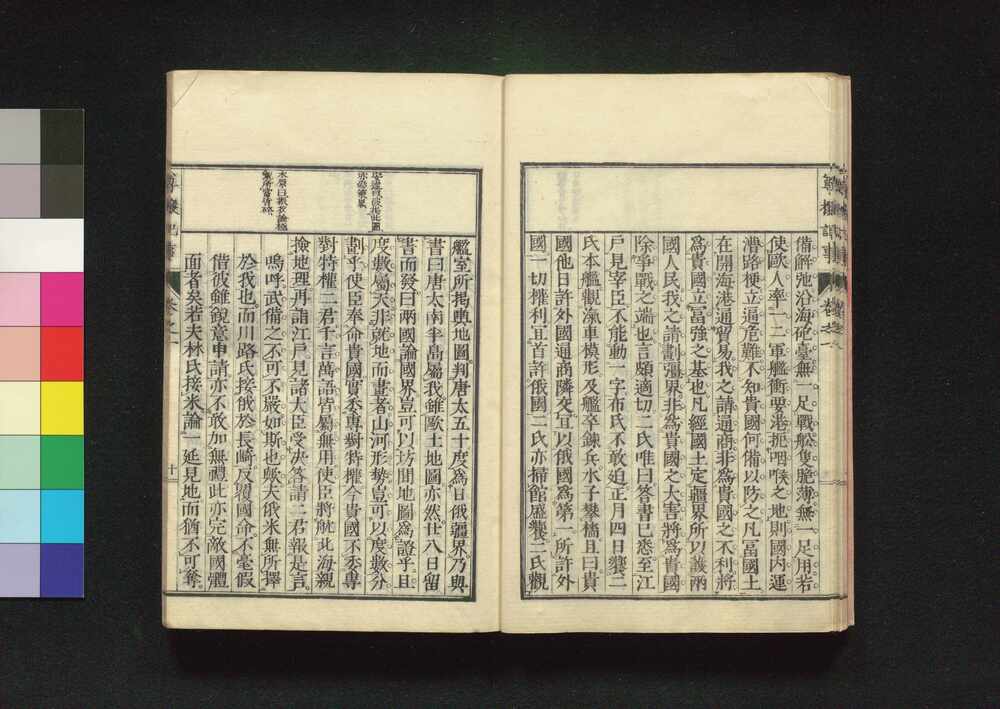 備解弛沿海砲臺無一足戰舩隻脆薄無一足用若
使歐人率一二軍艦衝要港扼咽喉之地則國内運
漕路梗立逼危難不知貴國何備以防之凡富國土
在開海港通貿易我之請通商非爲貴國之不利將
爲貴國立富強之基也凡經國土定疆界所以護兩
國人民我之請劃彊界非爲貴國之大害將爲貴國
除爭戰之端也言頗適切二氏唯曰答書已悉至江
戸見宰臣不能動一字布氏不敢迫正月四日饗二
氏本艦觀滊車模形及艦卒錬兵水子攀檣且曰貴
國他日許外國通商隣交宜以俄國爲第一所許外
國一切權利宜首許俄國二氏亦掃館盛饗二氏觀
艦室所揭輿地圖判唐太五十度爲日俄疆界乃與
書曰唐太南半島屬我錐歐土地圖亦然廿八日留
書而發曰兩國論國界豈可以坊間地圖爲證乎且
度數屬天非就地而畫者山河形勢豈可以度數分
劃乎使臣奉命貴國實委專對特權今貴國不委專
對特權二君千言萬語皆屬無用使臣將航北海親
撿地理再詣江戸見諸大臣受决答請二君報是言
嗚呼武備之不可不嚴如斯也歟夫俄米無所擇
於我也而川路氏接俄於長崎反覆國命不毫假
借彼雖銳意申請亦不敢加無禮此亦完敵國體
面者矣若夫林氏接米論一延見地而猶不可奪
卷之一
十